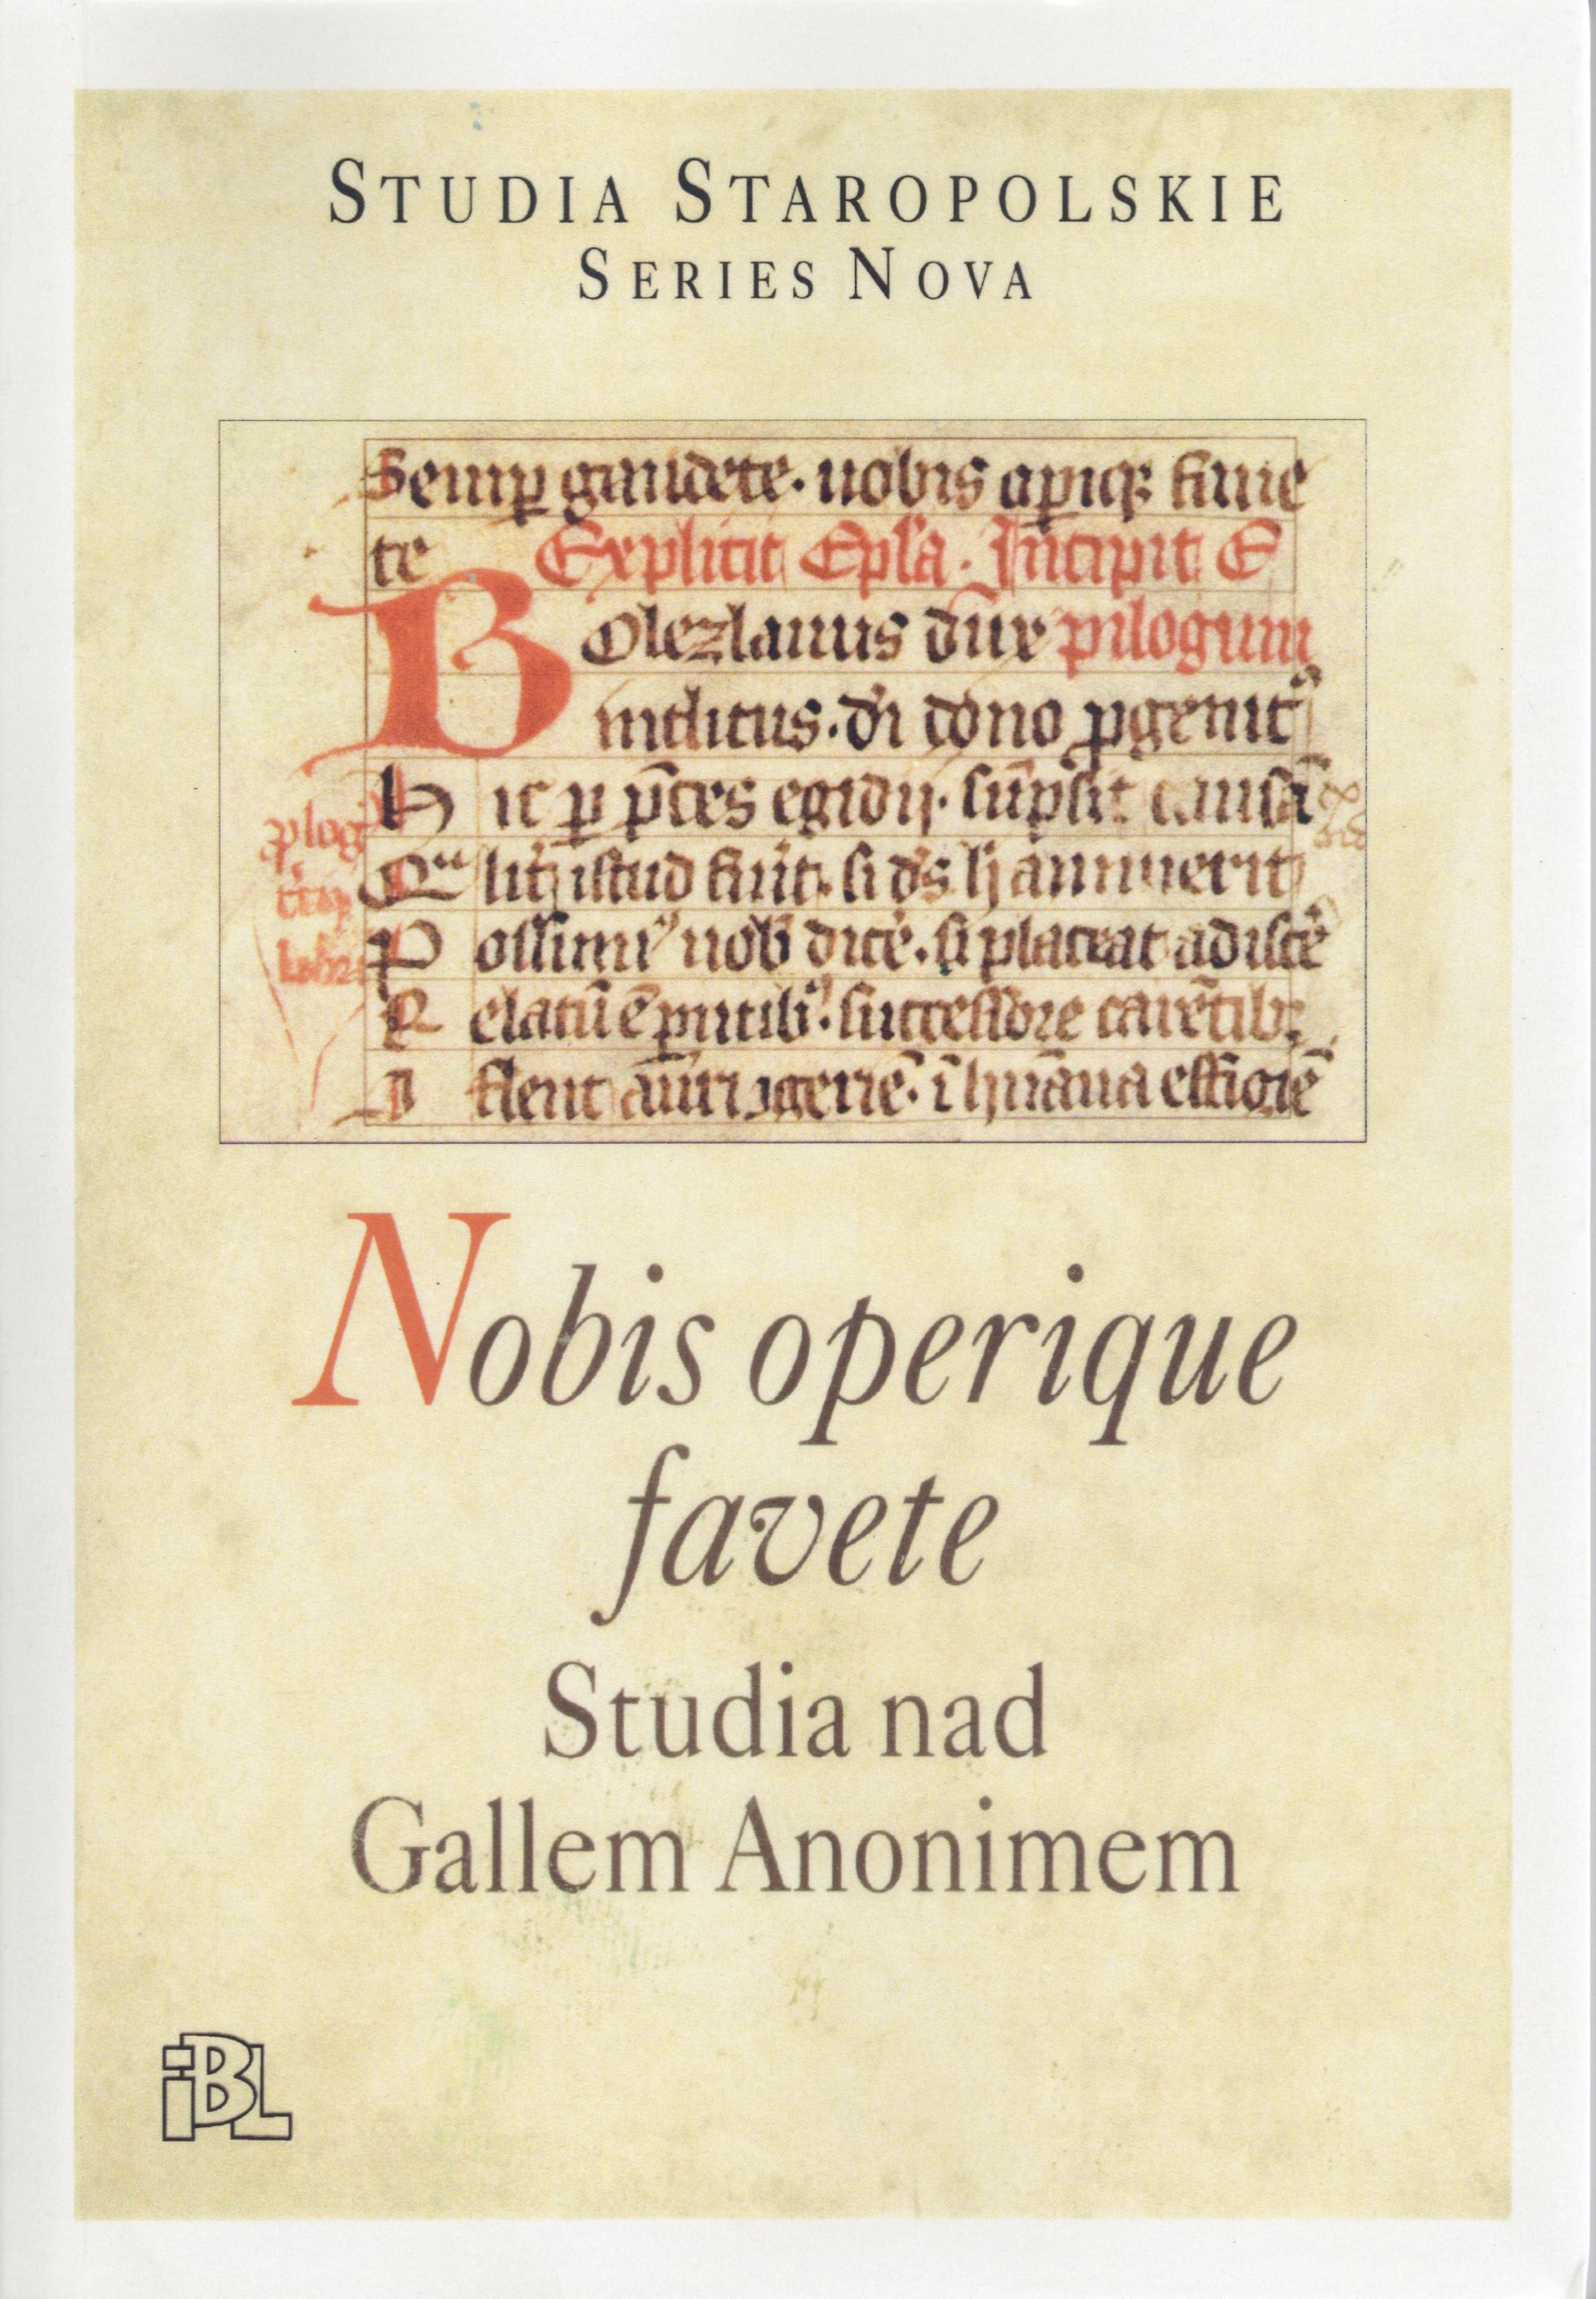 STUDIA STAROPOLSKIE
SERIES NOVA
Semꝑ gaudete. nobis oꝑiqꝫ faue
te Explicit Epl'a. Incipit E
BOlezlauus dux pilogum
inclitus. di dono ꝓgenit
h ic ꝑ p̄ces egidij. sūpsit causā
Qua lit istud fuit. si ds h annuerit
P ossimꝰ uob dice. si placeat adisce
R elatū ē putibꝰ. successore carētibꝫ
flent auri ꝯgeriē. ī huāna effigiē
Nobis operique
favete
Studia nad
Gallem Anonimem
IBL